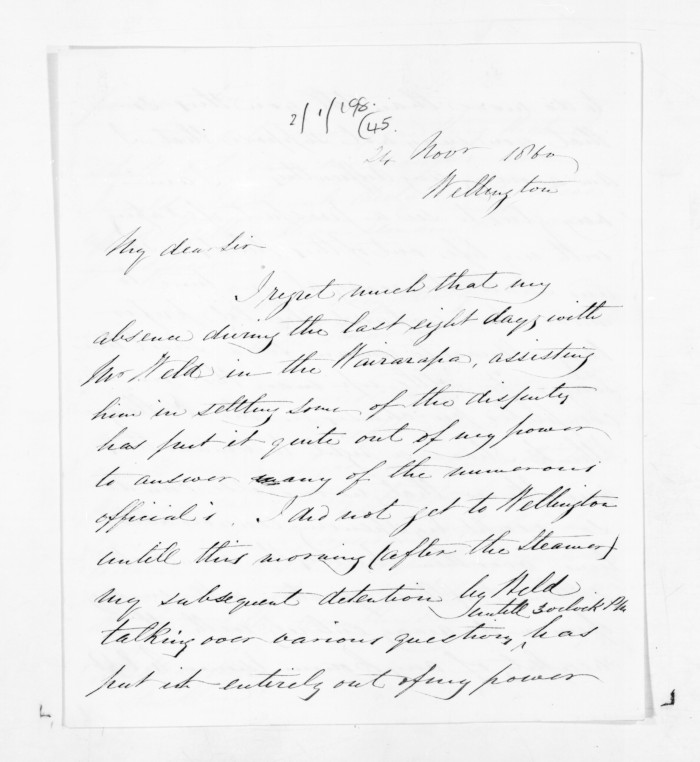 2/1/198.
(45.
24 Novr 1860
Wellington
My dear Sir
I regret much that my
absence during the last eight days, with
Mr Weld in the Wairarapa, assisting
him in settling some of the disputes
has put it quite out of my power
to answer any of the numerous
official's. I did not get to Wellington
untill this morning (after the Steamer)
my subsequent detention by Weld
untill 3 oclock PM
talking over various questions, has
put it entirely out of my power